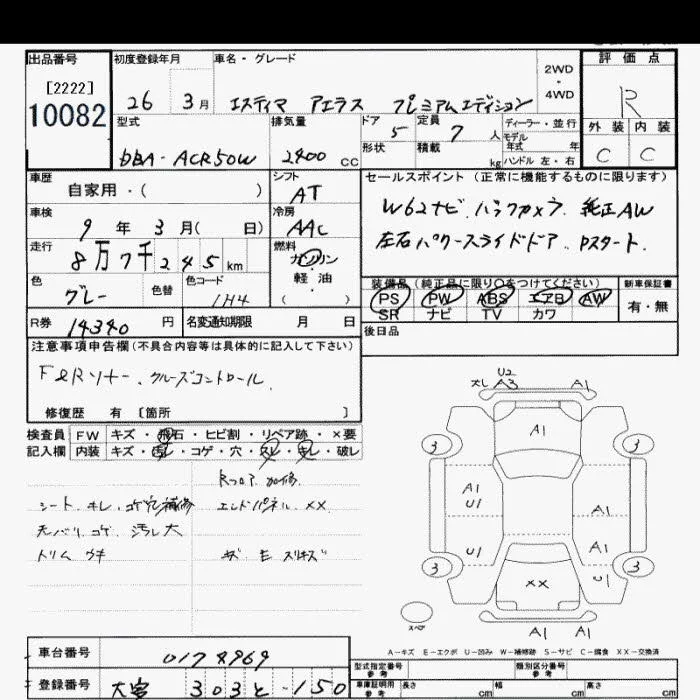 出品番号 初度登録年月 車名・グレード 2WD・4WD 評価点
[2222]
10082
26 3月 エスティマ アエラス プレミアムエディション
R
型式 排気量 ドア 定員 ディーラー・並行
5 7人 モデル年式 年
形状 積載 kg ハンドル 左・右
外装 内装
C C
DBA-ACR50W 2400 CC
車歴 シフト セールスポイント (正常に機能するものに限ります)
自家用・( ) AT
車検 冷房
9年 3月( 日) AAC
W62ナビ.バックカメラ. 純正AW
左右パワースライドドア. Pスタート.
走行 燃料
8万7千245km ガソリン・軽油・( )
色 色替 色コード
グレー 1H4
装備品 (純正品に限り○をつけてください) 新車保証書
PS PW ABS エアB AW 有・無
SR ナビ TV カワ
R券 14340円 名変通知期限 月 日
後日品
注意事項申告欄(不具合内容等は具体的に記入して下さい)
F&Rソナー. クルーズコントロール.
修復歴 有 〔箇所 〕
検査員 FW キズ・飛石・ヒビ割・リペア跡・×要
記入欄 内装 キズ・汚レ・コゲ・穴・スレ・キレ・破レ
Rフロア 加修.
シート キレ.コゲ穴補修 エンドパネル XX.
天バリ コゲ 汚レ大
トリム ウキ キズ E スリキズ
U2
A3 A1
A1
3 3
A1
U1 A1
A1
U1 U1
3 3
XX
スペア
A1 A1
A-キズ E-エクボ U-凹み W-補修跡 S-サビ C-腐食 XX-交換済
車台番号 0178969
登録番号 大宮 303 と-150
型式指定番号 参考 類別区分番号 参考
車庫証明用 参考 長さ cm 幅 cm 高さ cm